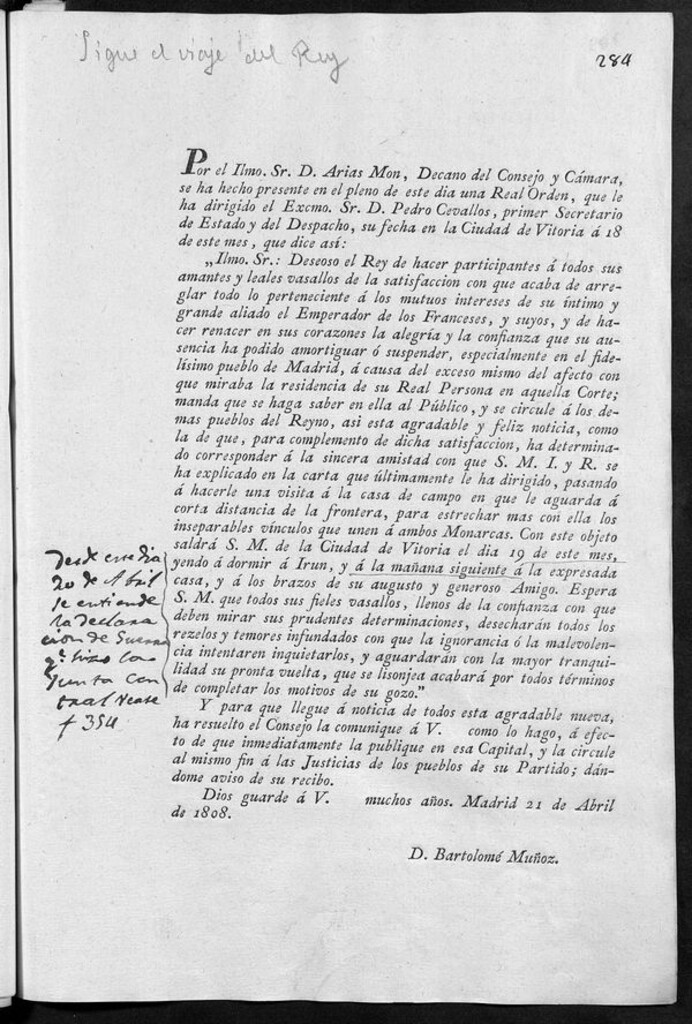 Sigue el viaje del Rey
284
Por el Ilmo. Sr. D. Arias Mon, Decano del Consejo y Cámara,
se ha hecho presente en el pleno de este dia una Real Orden, que le
ha dirigido el Excmo. Sr. D. Pedro Cevallos, primer Secretario
de Estado y del Despacho, su fecha en la Ciudad de Vitoria á 18
de este mes, que dice así:
„Ilmo. Sr.: Deseoso el Rey de hacer participantes á todos sus
amantes y leales vasallos de la satisfaccion con que acaba de arre-
glar todo lo perteneciente á los mutuos intereses de su íntimo y
grande aliado el Emperador de los Franceses, y suyos, y de ha-
cer renacer en sus corazones la alegría y la confianza que su au-
sencia ha podido amortiguar ó suspender, especialmente en el fide-
lísimo pueblo de Madrid, á causa del exceso mismo del afecto con
que miraba la residencia de su Real Persona en aquella Corte;
manda que se haga saber en ella al Público, y se circule á los de-
mas pueblos del Reyno, asi esta agradable y feliz noticia, como
la de que, para complemento de dicha satisfaccion, ha determina-
do corresponder á la sincera amistad con que S. M. I. y R. se
ha explicado en la carta que últimamente le ha dirigido, pasando
á hacerle una visita á la casa de campo en que le aguarda á
corta distancia de la frontera, para estrechar mas con ella los
inseparables vínculos que unen á ambos Monarcas. Con este objeto
saldrá S. M. de la Ciudad de Vitoria el dia 19 de este mes,
yendo á dormir á Irun, y á la mañana siguiente á la expresada
casa, y á los brazos de su augusto y generoso Amigo. Espera
S. M. que todos sus fieles vasallos, llenos de la confianza con que
deben mirar sus prudentes determinaciones, desecharán todos los
rezelos y temores infundados con que la ignorancia ó la malevolen-
cia intentaren inquietarlos, y aguardarán con la mayor tranqui-
lidad su pronta vuelta, que se lisonjea acabará por todos términos
de completar los motivos de su gozo.”
Y para que llegue á noticia de todos esta agradable nueva,
ha resuelto el Consejo la comunique á V. como lo hago, á efec-
to de que inmediatamente la publique en esa Capital, y la circule
al mismo fin á las Justicias de los pueblos de su Partido; dán-
dome aviso de su recibo.
Dios guarde á V. muchos años. Madrid 21 de Abril
de 1808.
D. Bartolomé Muñoz.
Desde este dia
20 de Abril
se entiende
la declara
cion de Guerra
q.e hizo la
Junta Cen
tral vease
f 354